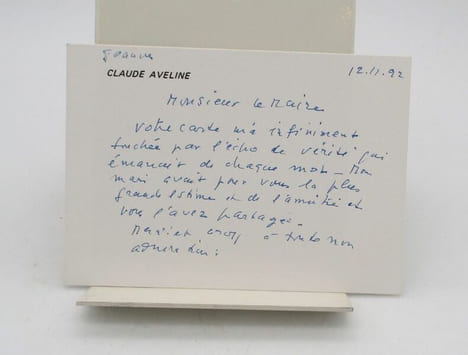 Jeanne
CLAUDE AVELINE
12.11.92
Monsieur le Maire
Votre carte m'a infiniment
touchée par l'écho de vérité qui
émanait de chaque mot - Mon
mari avait pour vous la plus
grande estime et de l'amitié et
vous l'avez partagé.
Merci et croyez à toute mon